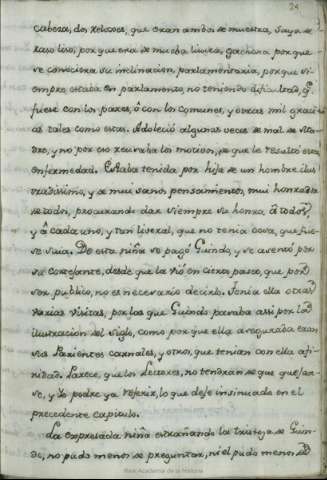 24
cabeza, dos reloxes, que eran ambos de muestra, saya de
raso liso, porque era de mucha lisura, gachona, porque
se conociera su inclinacion, parlamentaria, porque si-
empre estaba en parlamento, no teniendo dificultad, q.
fuese con los pares, ó con los comunes, y otras mil graci-
as tales como estas. Adoleció algunas veces de mal de
y no por eso recusaba los motivos, de que le resultó esta
enfermedad. Estaba tenida por hija de un hombre ilus-
tradisimo, y de muy sanos pensamientos, mui honrada
de todos, procurando dar siempre su honra á todos,
y á cada uno, y tan liberal, que no tenia cosa, que fue-
se suia. De esta niña se pagó Guindo, y se asentó por
su cortejante, desde que la vió en cierto paseo, que por
ser publico, no es necesario decirlo. Tenia ella otras
varias visitas, por las que Guindo pasaba assi por la
ilustracion del siglo, como por que ella aseguraba eran
sus Parientes carnales, y otros, que tenian con ella afi-
nidad. Parece, que los Lectores, no tendrán de que quejar-
se, y Yo podré ya referir, lo que dejé insinuado en el
precedente capitulo.
La expresada niña extrañando la tristeza de Guin-
do, no pudo menos de preguntar, ni el pudo menos de
Real Academia de la Historia